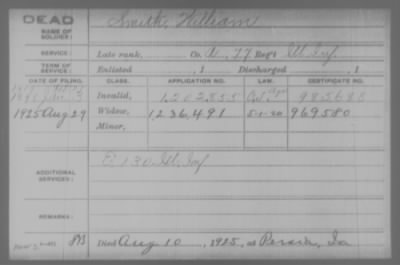 DEAD
NAME OF SOLDIER:
Smith, William
SERVICE:
Late rank, Co. A, 77 Reg't Ill. Inf.
TERM OF SERVICE:
Enlisted , 1 Discharged , 1
DATE OF FILING. CLASS. APPLICATION NO. LAW. CERTIFICATE NO.
Invalid, 985688
1925 Aug 29 Widow, 1,236,491 5-1-20 969580
Minor,
ADDITIONAL SERVICES:
E 130 Ill. Inf
REMARKS:
Died Aug 10, 1925, at Persia, Ia